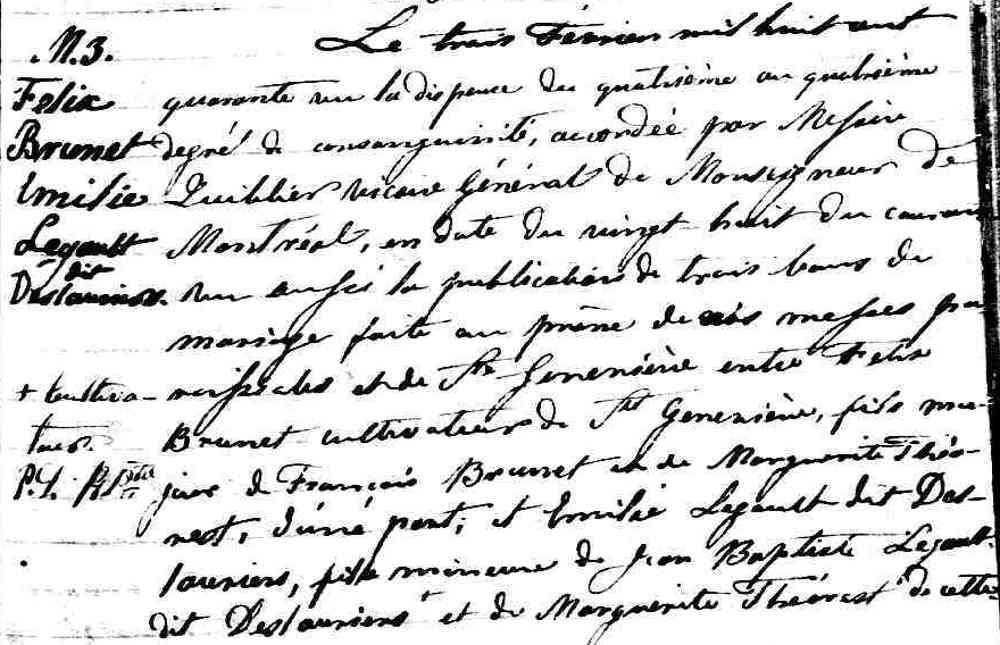 M.3.
Felix
Brunet
Emilie
Legault
dit
Deslauriers.
+ cultiva-
teur.
P.L. Ptre
Le trois Février mil huit cent
quarante vu la dispense du quatrième au quatrième
degré de consanguinité, accordée par Messire
Quiblier vicaire Général de Monseigneur de
Montréal, en date du vingt huit du courant
vu aussi la publication de trois bans de
mariage faite au prône de nos messes pa-
roissiales et de Ste Geneviève entre Felix
Brunet cultivateur de Ste Geneviève, fils ma-
jeur de François Brunet et de Marguerite Théo-
rest, d'une part, et Emilie Legault dit Des-
lauriers, fille mineure de Jean Baptiste Legault
dit Deslauriers + et de Marguerite Théorest de cette